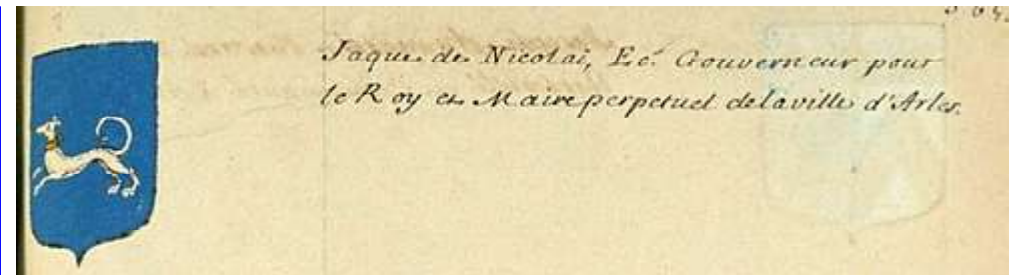 Jaques de Nicolai, Ecr. Gouverneur pour
le Roy et Maire perpetuel de la ville d'Arles.